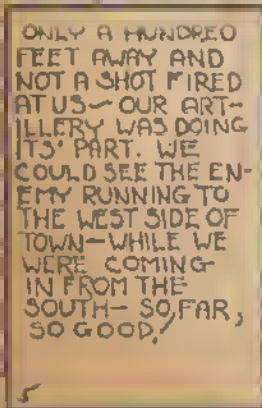 ONLY A HUNDRED
FEET AWAY AND
NOT A SHOT FIRED
AT US— OUR ART-
ILLERY WAS DOING
ITS' PART. WE
COULD SEE THE EN-
EMY RUNNING TO
THE WEST SIDE OF
TOWN— WHILE WE
WERE COMING
IN FROM THE
SOUTH— SO, FAR,
SO GOOD!
5